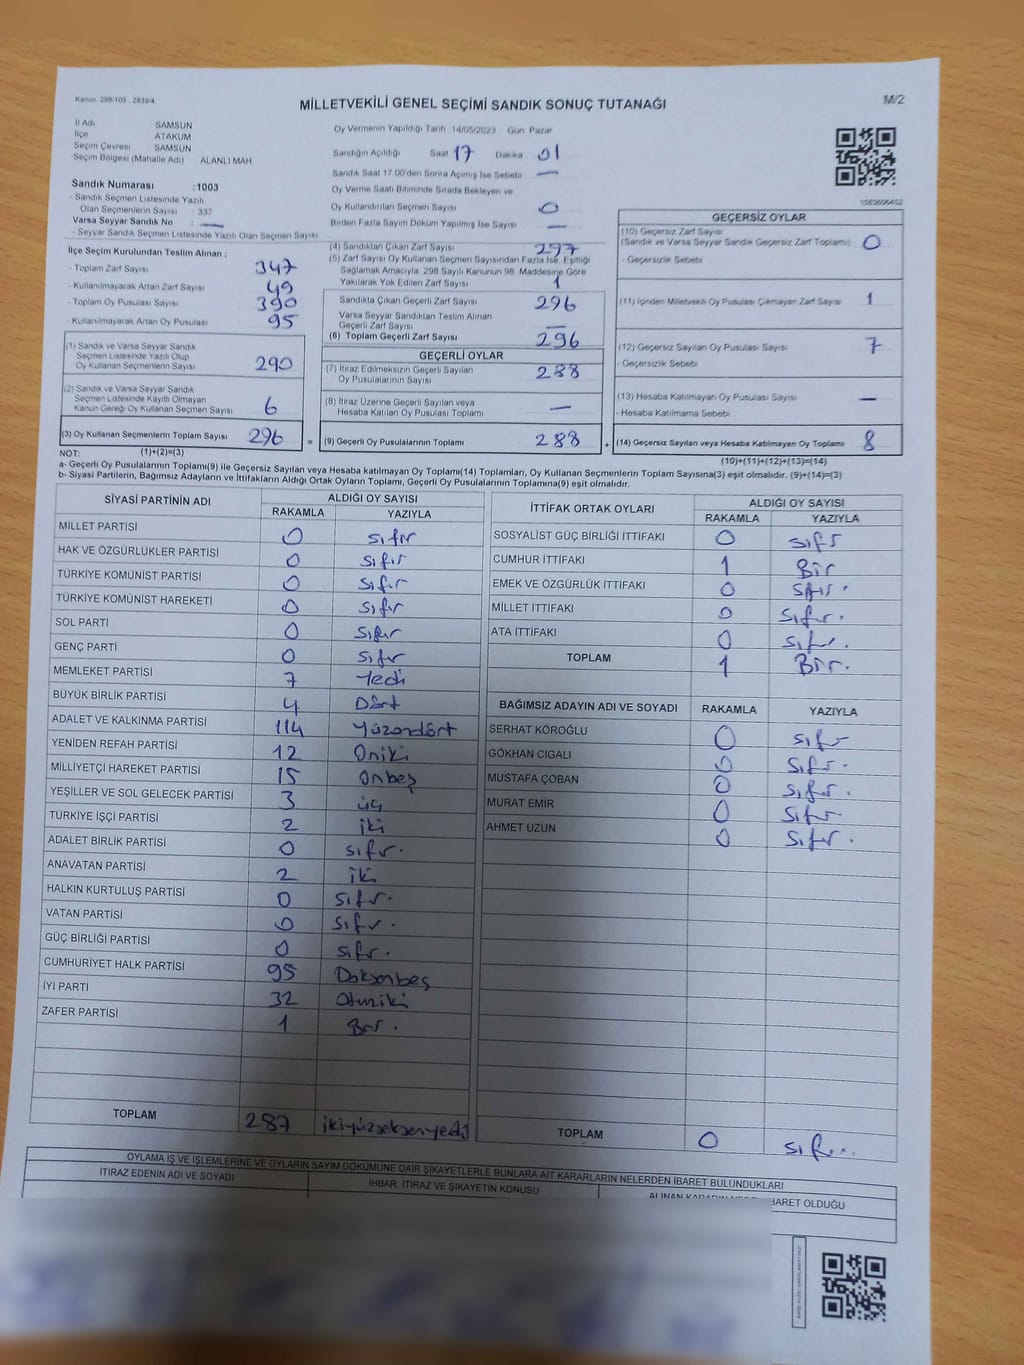 Kanun. 298/105 , 2839/4
MİLLETVEKİLİ GENEL SEÇİMİ SANDIK SONUÇ TUTANAĞI
M/2
İl Adı SAMSUN
İlçe ATAKUM
Seçim Çevresi SAMSUN
Seçim Bölgesi (Mahalle Adı) ALANLI MAH
Sandık Numarası :1003
- Sandık Seçmen Listesinde Yazılı
Olan Seçmenlerin Sayısı : 337
Varsa Seyyar Sandık No : —
- Seyyar Sandık Seçmen Listesinde Yazılı Olan Seçmen Sayısı
Oy Vermenin Yapıldığı Tarih 14/05/2023 Gün Pazar
Sandığın Açıldığı Saat 17 Dakika 01
Sandık Saat 17.00'den Sonra Açımış İse Sebebi —
Oy Verme Saati Bitiminde Sırada Bekleyen ve
Oy Kullandırılan Seçmen Sayısı 0
Birden Fazla Sayım Döküm Yapılmış İse Sayısı —
1083606452
İlçe Seçim Kurulundan Teslim Alınan ;
- Toplam Zarf Sayısı 347
- Kullanılmayarak Artan Zarf Sayısı 49
- Toplam Oy Pusulası Sayısı 390
- Kullanılmayarak Artan Oy Pusulası 95
(1) Sandık ve Varsa Seyyar Sandık
Seçmen Listesinde Yazılı Olup
Oy Kullanan Seçmenlerin Sayısı 290
(2) Sandık ve Varsa Seyyar Sandık
Seçmen Listesinde Kayıtlı Olmayan
Kanun Gereği Oy Kullanan Seçmen Sayısı 6
(3) Oy Kullanan Seçmenlerin Toplam Sayısı 296
(4) Sandıktan Çıkan Zarf Sayısı 297
(5) Zarf Sayısı Oy Kullanan Seçmen Sayısından Fazla İse, Eşitliği
Sağlamak Amacıyla, 298 Sayılı Kanunun 98. Maddesine Göre
Yakılarak Yok Edilen Zarf Sayısı 1
Sandıkta Çıkan Geçerli Zarf Sayısı 296
Varsa Seyyar Sandıktan Teslim Alınan
Geçerli Zarf Sayısı —
(6) Toplam Geçerli Zarf Sayısı 296
GEÇERLİ OYLAR
(7) İtiraz Edilmeksizin Geçerli Sayılan
Oy Pusulalarının Sayısı 288
(8) İtiraz Üzerine Geçerli Sayılan veya
Hesaba Katılan Oy Pusulası Toplamı —
= (9) Geçerli Oy Pusulalarının Toplamı 288
GEÇERSİZ OYLAR
(10) Geçersiz Zarf Sayısı
(Sandık ve Varsa Seyyar Sandık Geçersiz Zarf Toplamı) 0
- Geçersizlik Sebebi
(11) İçinden Milletvekili Oy Pusulası Çıkmayan Zarf Sayısı 1
(12) Geçersiz Sayılan Oy Pusulası Sayısı 7
- Geçersizlik Sebebi
(13) Hesaba Katılmayan Oy Pusulası Sayısı —
- Hesaba Katılmama Sebebi
+ (14) Geçersiz Sayılan veya Hesaba Katılmayan Oy Toplamı 8
NOT: (1)+(2)=(3)
(10)+(11)+(12)+(13)=(14)
a- Geçerli Oy Pusulalarının Toplamı(9) ile Geçersiz Sayılan veya Hesaba katılmayan Oy Toplamı(14) Toplamları, Oy Kullanan Seçmenlerin Toplam Sayısına(3) eşit olmalıdır. (9)+(14)=(3)
b- Siyasi Partilerin, Bağımsız Adayların ve İttifakların Aldığı Ortak Oyların Toplamı, Geçerli Oy Pusulalarının Toplamına(9) eşit olmalıdır.
SİYASİ PARTİNİN ADI ALDIĞI OY SAYISI
RAKAMLA YAZIYLA
MİLLET PARTİSİ 0 sıfır
HAK VE ÖZGÜRLÜKLER PARTİSİ 0 sıfır
TÜRKİYE KOMÜNİST PARTİSİ 0 sıfır
TÜRKİYE KOMÜNİST HAREKETİ 0 sıfır
SOL PARTİ 0 sıfır
GENÇ PARTİ 0 sıfır
MEMLEKET PARTİSİ 7 Yedi
BÜYÜK BİRLİK PARTİSİ 4 Dört
ADALET VE KALKINMA PARTİSİ 114 Yüzondört
YENİDEN REFAH PARTİSİ 12 Oniki
MİLLİYETÇİ HAREKET PARTİSİ 15 onbeş
YEŞİLLER VE SOL GELECEK PARTİSİ 3 üç
TÜRKİYE İŞÇİ PARTİSİ 2 iki
ADALET BİRLİK PARTİSİ 0 sıfır.
ANAVATAN PARTİSİ 2 iki
HALKIN KURTULUŞ PARTİSİ 0 sıfır.
VATAN PARTİSİ 0 sıfır.
GÜÇ BİRLİĞİ PARTİSİ 0 sıfır.
CUMHURİYET HALK PARTİSİ 95 Doksanbeş
İYİ PARTİ 32 Otuziki
ZAFER PARTİSİ 1 Bir.
TOPLAM 287 ikiyüzseksenyedi
İTTİFAK ORTAK OYLARI ALDIĞI OY SAYISI
RAKAMLA YAZIYLA
SOSYALİST GÜÇ BİRLİĞİ İTTİFAKI 0 sıfır
CUMHUR İTTİFAKI 1 Bir
EMEK VE ÖZGÜRLÜK İTTİFAKI 0 sıfır.
MİLLET İTTİFAKI 0 sıfır.
ATA İTTİFAKI 0 sıfır.
TOPLAM 1 Bir.
BAĞIMSIZ ADAYIN ADI VE SOYADI RAKAMLA YAZIYLA
SERHAT KÖROĞLU 0 sıfır
GÖKHAN CIGALI 0 sıfır.
MUSTAFA ÇOBAN 0 sıfır.
MURAT EMİR 0 sıfır.
AHMET UZUN 0 sıfır.
TOPLAM 0 sıfır...
OYLAMA İŞ VE İŞLEMLERİNE VE OYLARIN SAYIM DÖKÜMÜNE DAİR ŞİKAYETLERLE BUNLARA AİT KARARLARIN NELERDEN İBARET BULUNDUKLARI
İTİRAZ EDENİN ADI VE SOYADI İHBAR, İTİRAZ VE ŞİKAYETİN KONUSU ALINAN KARARIN NEDEN İBARET OLDUĞU